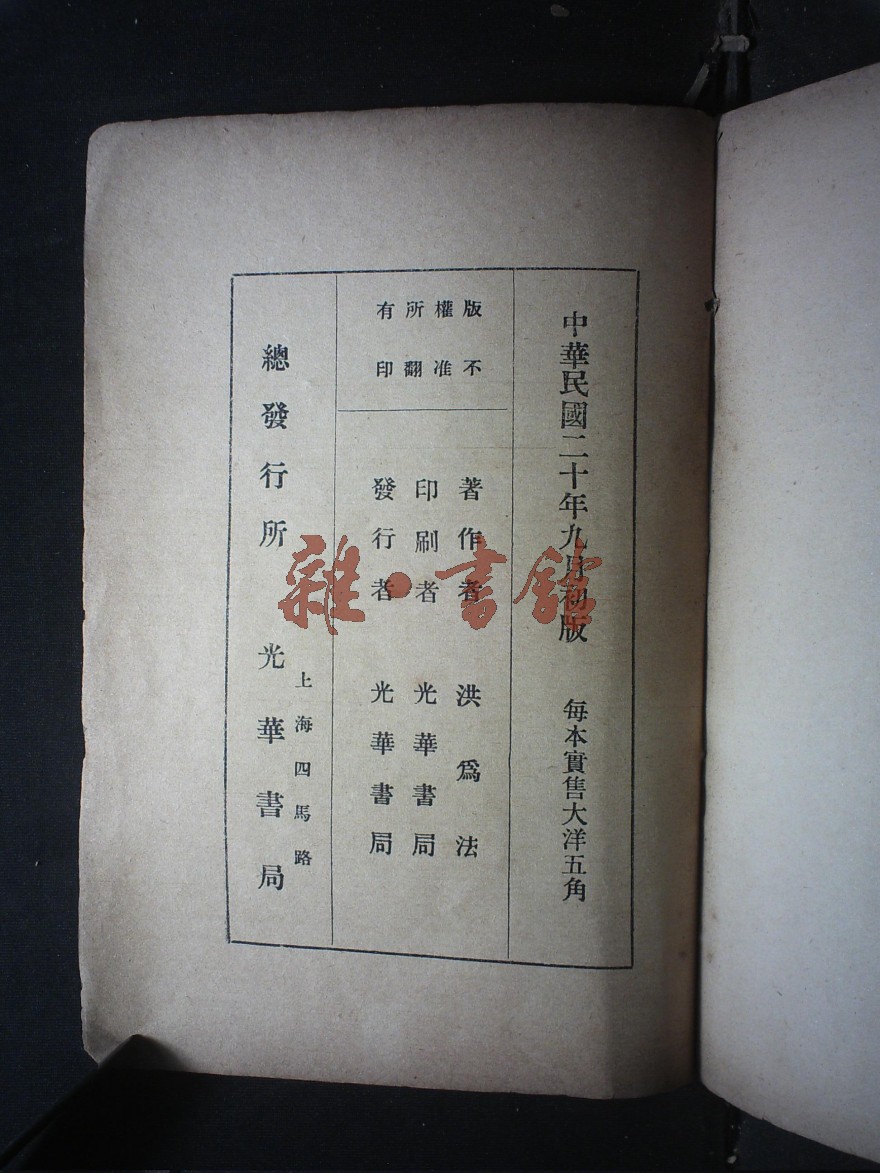 中華民國二十年九月初版　每本實售大洋五角
版權所有
不准翻印
著作者　洪爲法
印刷者　光華書局
發行者　光華書局
上海四馬路
總發行所　光華書局
雜·書館